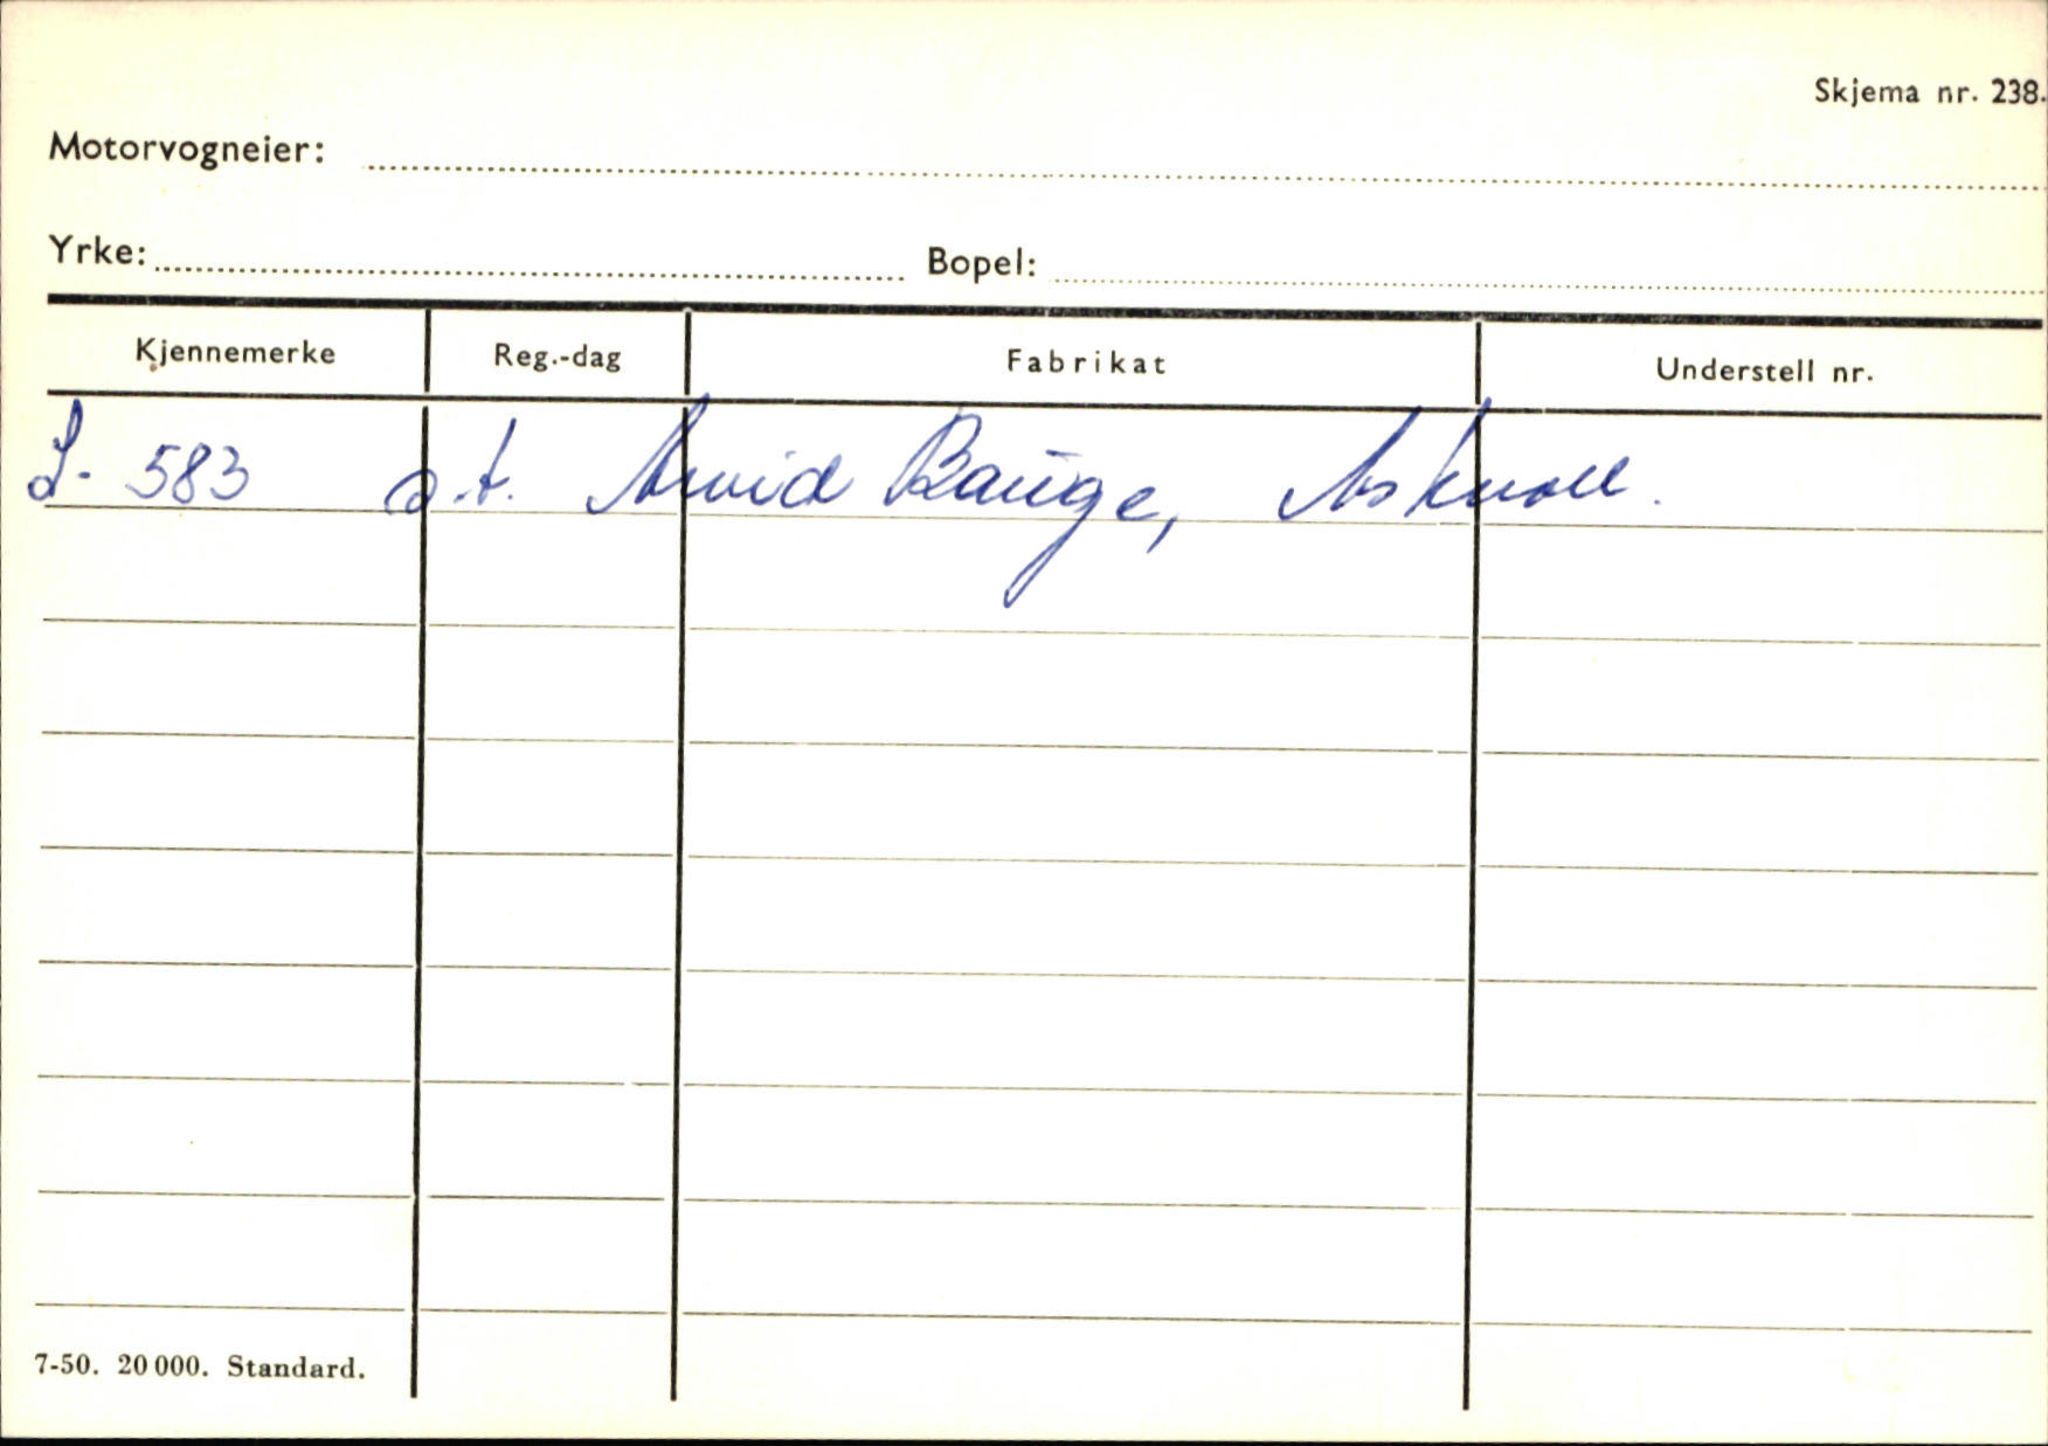 Skjema nr. 238.
Motorvogneier:
Yrke: Bopel:
Kjennemerke Reg.-dag Fabrikat Understell nr.
S- 583 o.t. Arvid Bauge, Askvoll.
7-50. 20 000. Standard.